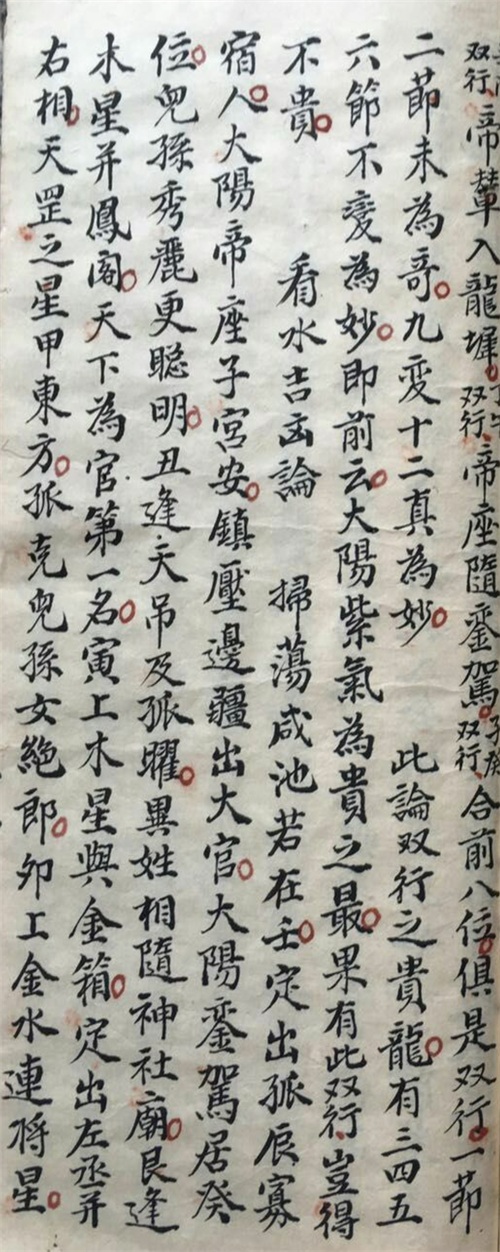 双行帝輦入龍墀双行帝座隨銮駕双行合前八位俱是双行一節
二節未為奇九変十二真為妙 此論双行之貴龍有三四五
六節不变為妙即前云大陽紫氣為貴之最果有此双行豈得
不貴 看水吉凶論 掃蕩咸池若在壬定出孤辰寡
宿人大陽帝座子宮安鎮壓邊疆出大官大陽銮駕居癸
位兒孫秀麗更聡明丑逢天吊及孤曜異姓相隨神社廟艮逢
木星并鳳阁天下為官第一名寅上木星與金箱定出左丞并
右相天罡之星甲東方孤克兒孫女絶郎卯上金水連将星